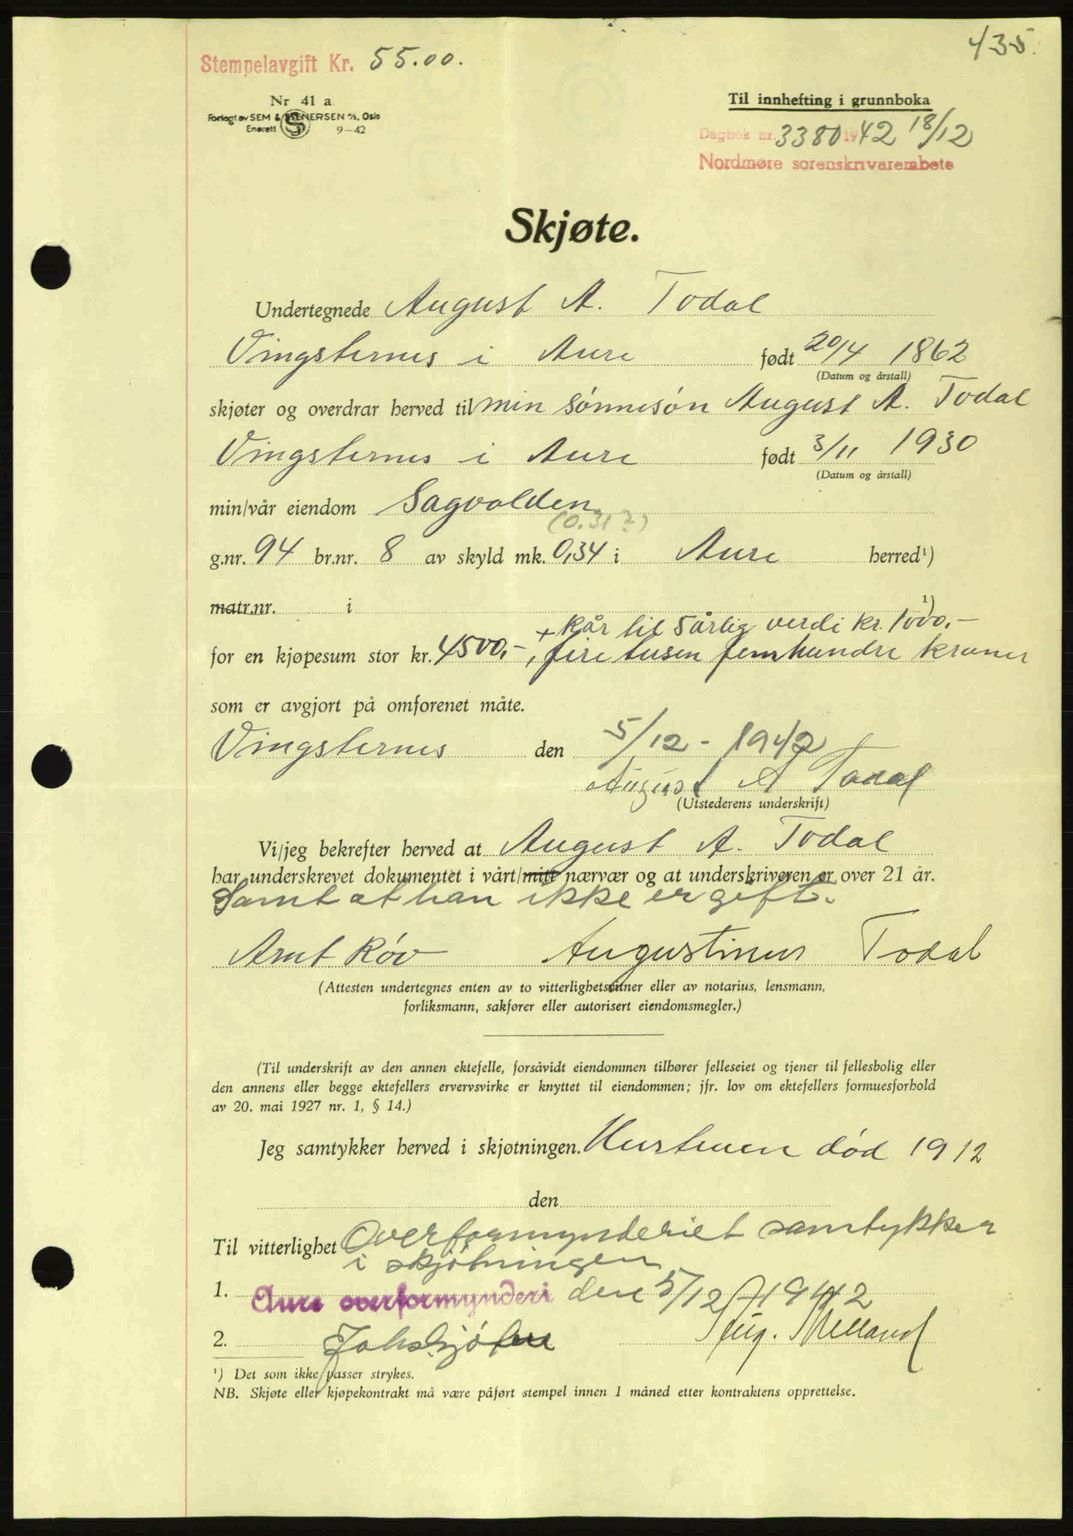 435.
Stempelavgift Kr. 55.00.
Nr 41 a
Forlagt av SEM & STENERSEN A/S, Oslo
Enerett 9-42
Til innhefting i grunnboka
Dagbok nr. 3380 1942 18/12
Nordmøre sorenskrivarembete
Skjøte.
Undertegnede August A. Todal
Vingsternes i Aure født 20/4 1862
(Datum og årstall)
skjøter og overdrar herved til min sønnesøn August A. Todal
Vingsternes i Aure født 3/11 1930
(Datum og årstall)
min/vår eiendom Sagvolden
(0.31?)
g.nr. 94 br.nr. 8 av skyld mk. 0,34 i Aure herred¹)
matr.nr. i ¹)
+ kår til 5 årlig verdi kr. 1000,-
for en kjøpesum stor kr. 4500,-, fire tusen femhundre kroner
som er avgjort på omforenet måte.
Vingsternes den 5/12 - 1942
August A Todal
(Utstederens underskrift)
Vi/jeg bekrefter herved at August A. Todal
har underskrevet dokumentet i vårt/mitt nærvær og at underskriveren er over 21 år.
Samt at han ikke er gift.
Arnt Røv Augustinus Todal
(Attesten undertegnes enten av to vitterlighetsvitner eller av notarius, lensmann,
forliksmann, sakfører eller autorisert eiendomsmegler.)
(Til underskrift av den annen ektefelle, forsåvidt eiendommen tilhører felleseiet og tjener til fellesbolig eller
den annens eller begge ektefellers ervervsvirke er knyttet til eiendommen; jfr. lov om ektefellers formuesforhold
av 20. mai 1927 nr. 1, § 14.)
Jeg samtykker herved i skjøtningen. Hustruen død 1912
den
Til vitterlighet Overformynderiet samtykker
i skjøtningen
1. Aure overformynderi den 5/12 1942
2.
¹) Det som ikke passer strykes.
NB. Skjøte eller kjøpekontrakt må være påført stempel innen 1 måned etter kontraktens opprettelse.